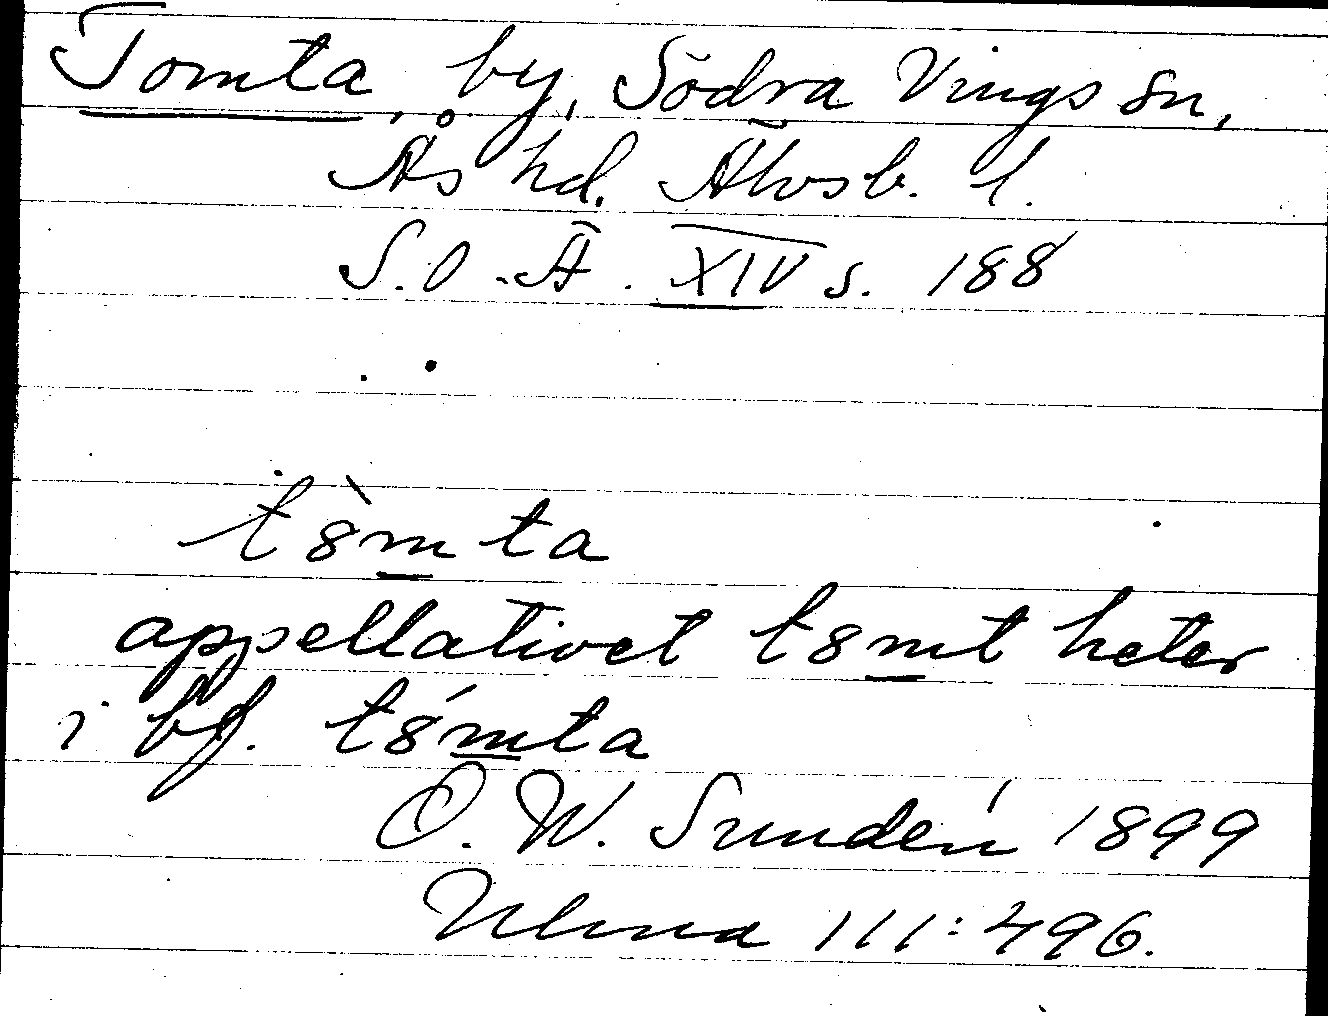 Tomta, by, Södra Vings sn,
Ås hd. Älvsb. l.
S.O.Ä. XIV s. 188
t8̀m̲ta
appellativet t8m̲t heter
i bf. t8́m̲ta
O. W. Sundén 1899
Ulma 111:496.